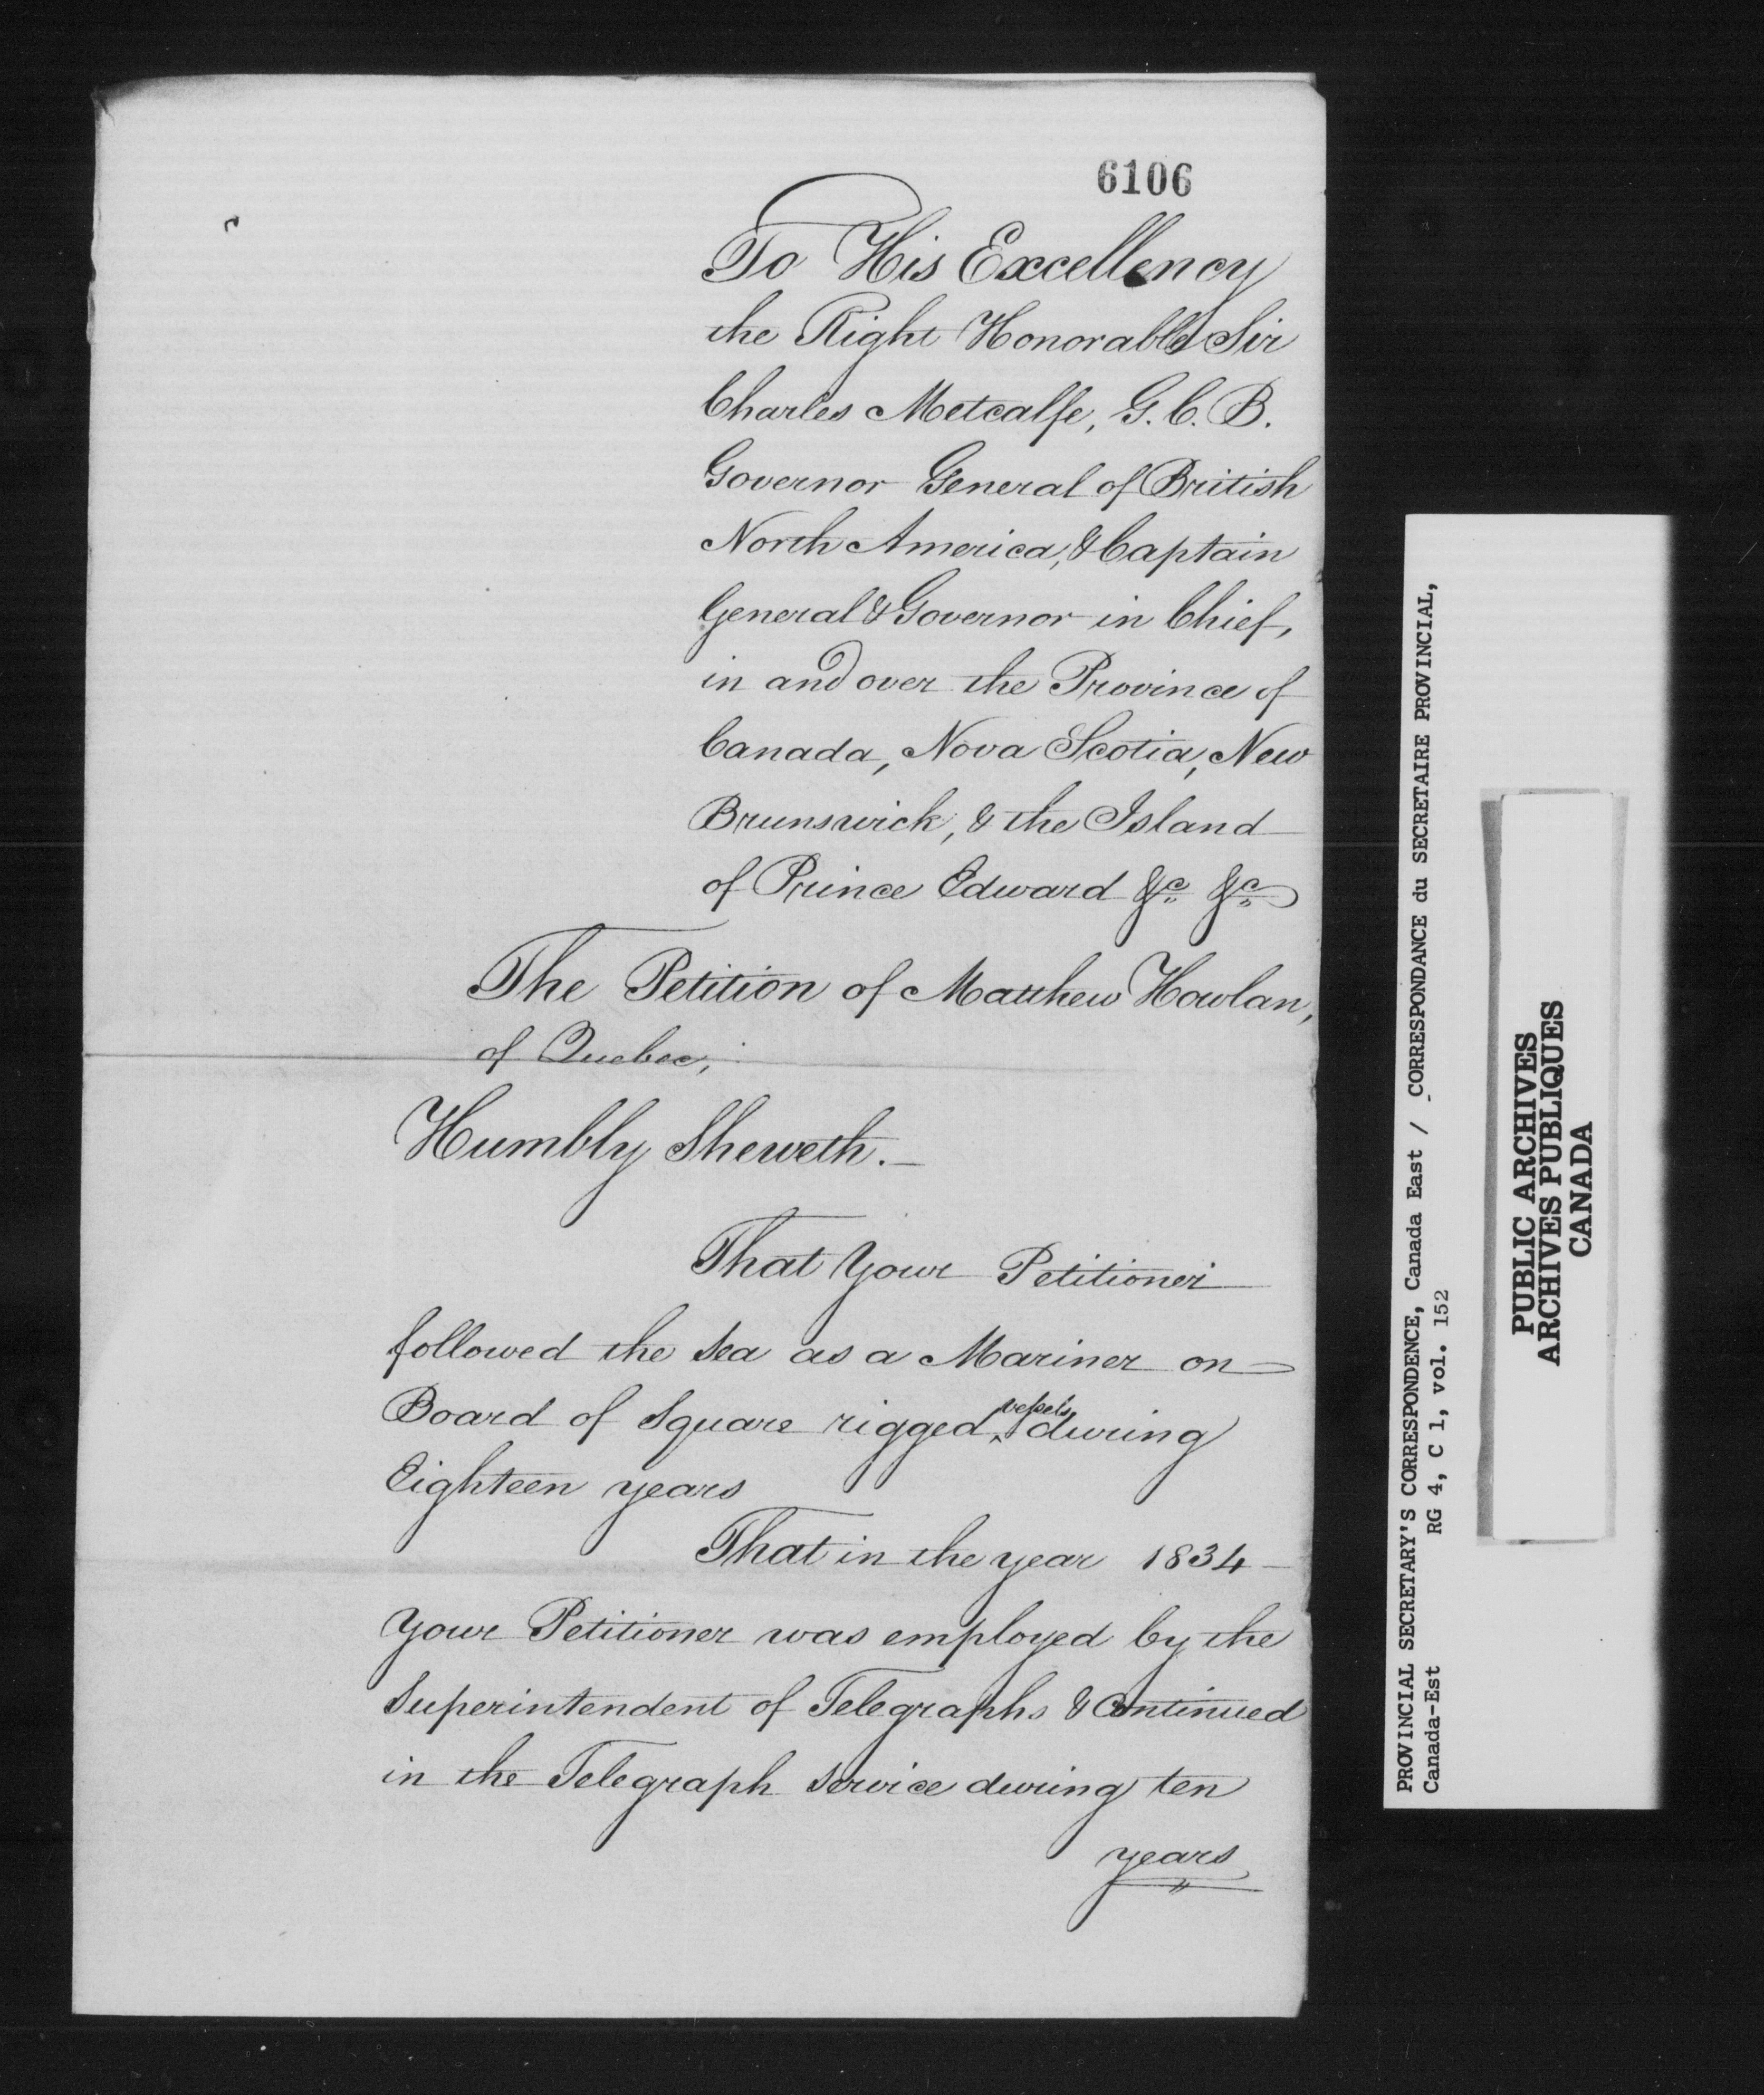 6106
To His Excellency
the Right Honorable Sir
Charles Metcalfe, G.C.B.
Governor General of British
North America, & Captain
General & Governor in Chief,
in and over the Province of
Canada, Nova Scotia, New
Brunswick, & the Island
of Prince Edward &c &c
The Petition of Matthew Howlan,
of Quebec,
Humbly Sheweth.—
That Your Petitioner
followed the Sea as a Mariner on
Board of Square rigged vessels during
Eighteen years
That in the year 1834
Your Petitioner was employed by the
Superintendent of Telegraphs & Continued
in the Telegraph Service during ten
years
PROVINCIAL SECRETARY'S CORRESPONDENCE, Canada East / CORRESPONDANCE du SECRETAIRE PROVINCIAL,
Canada-Est RG 4, C 1, vol. 152
PUBLIC ARCHIVES
ARCHIVES PUBLIQUES
CANADA